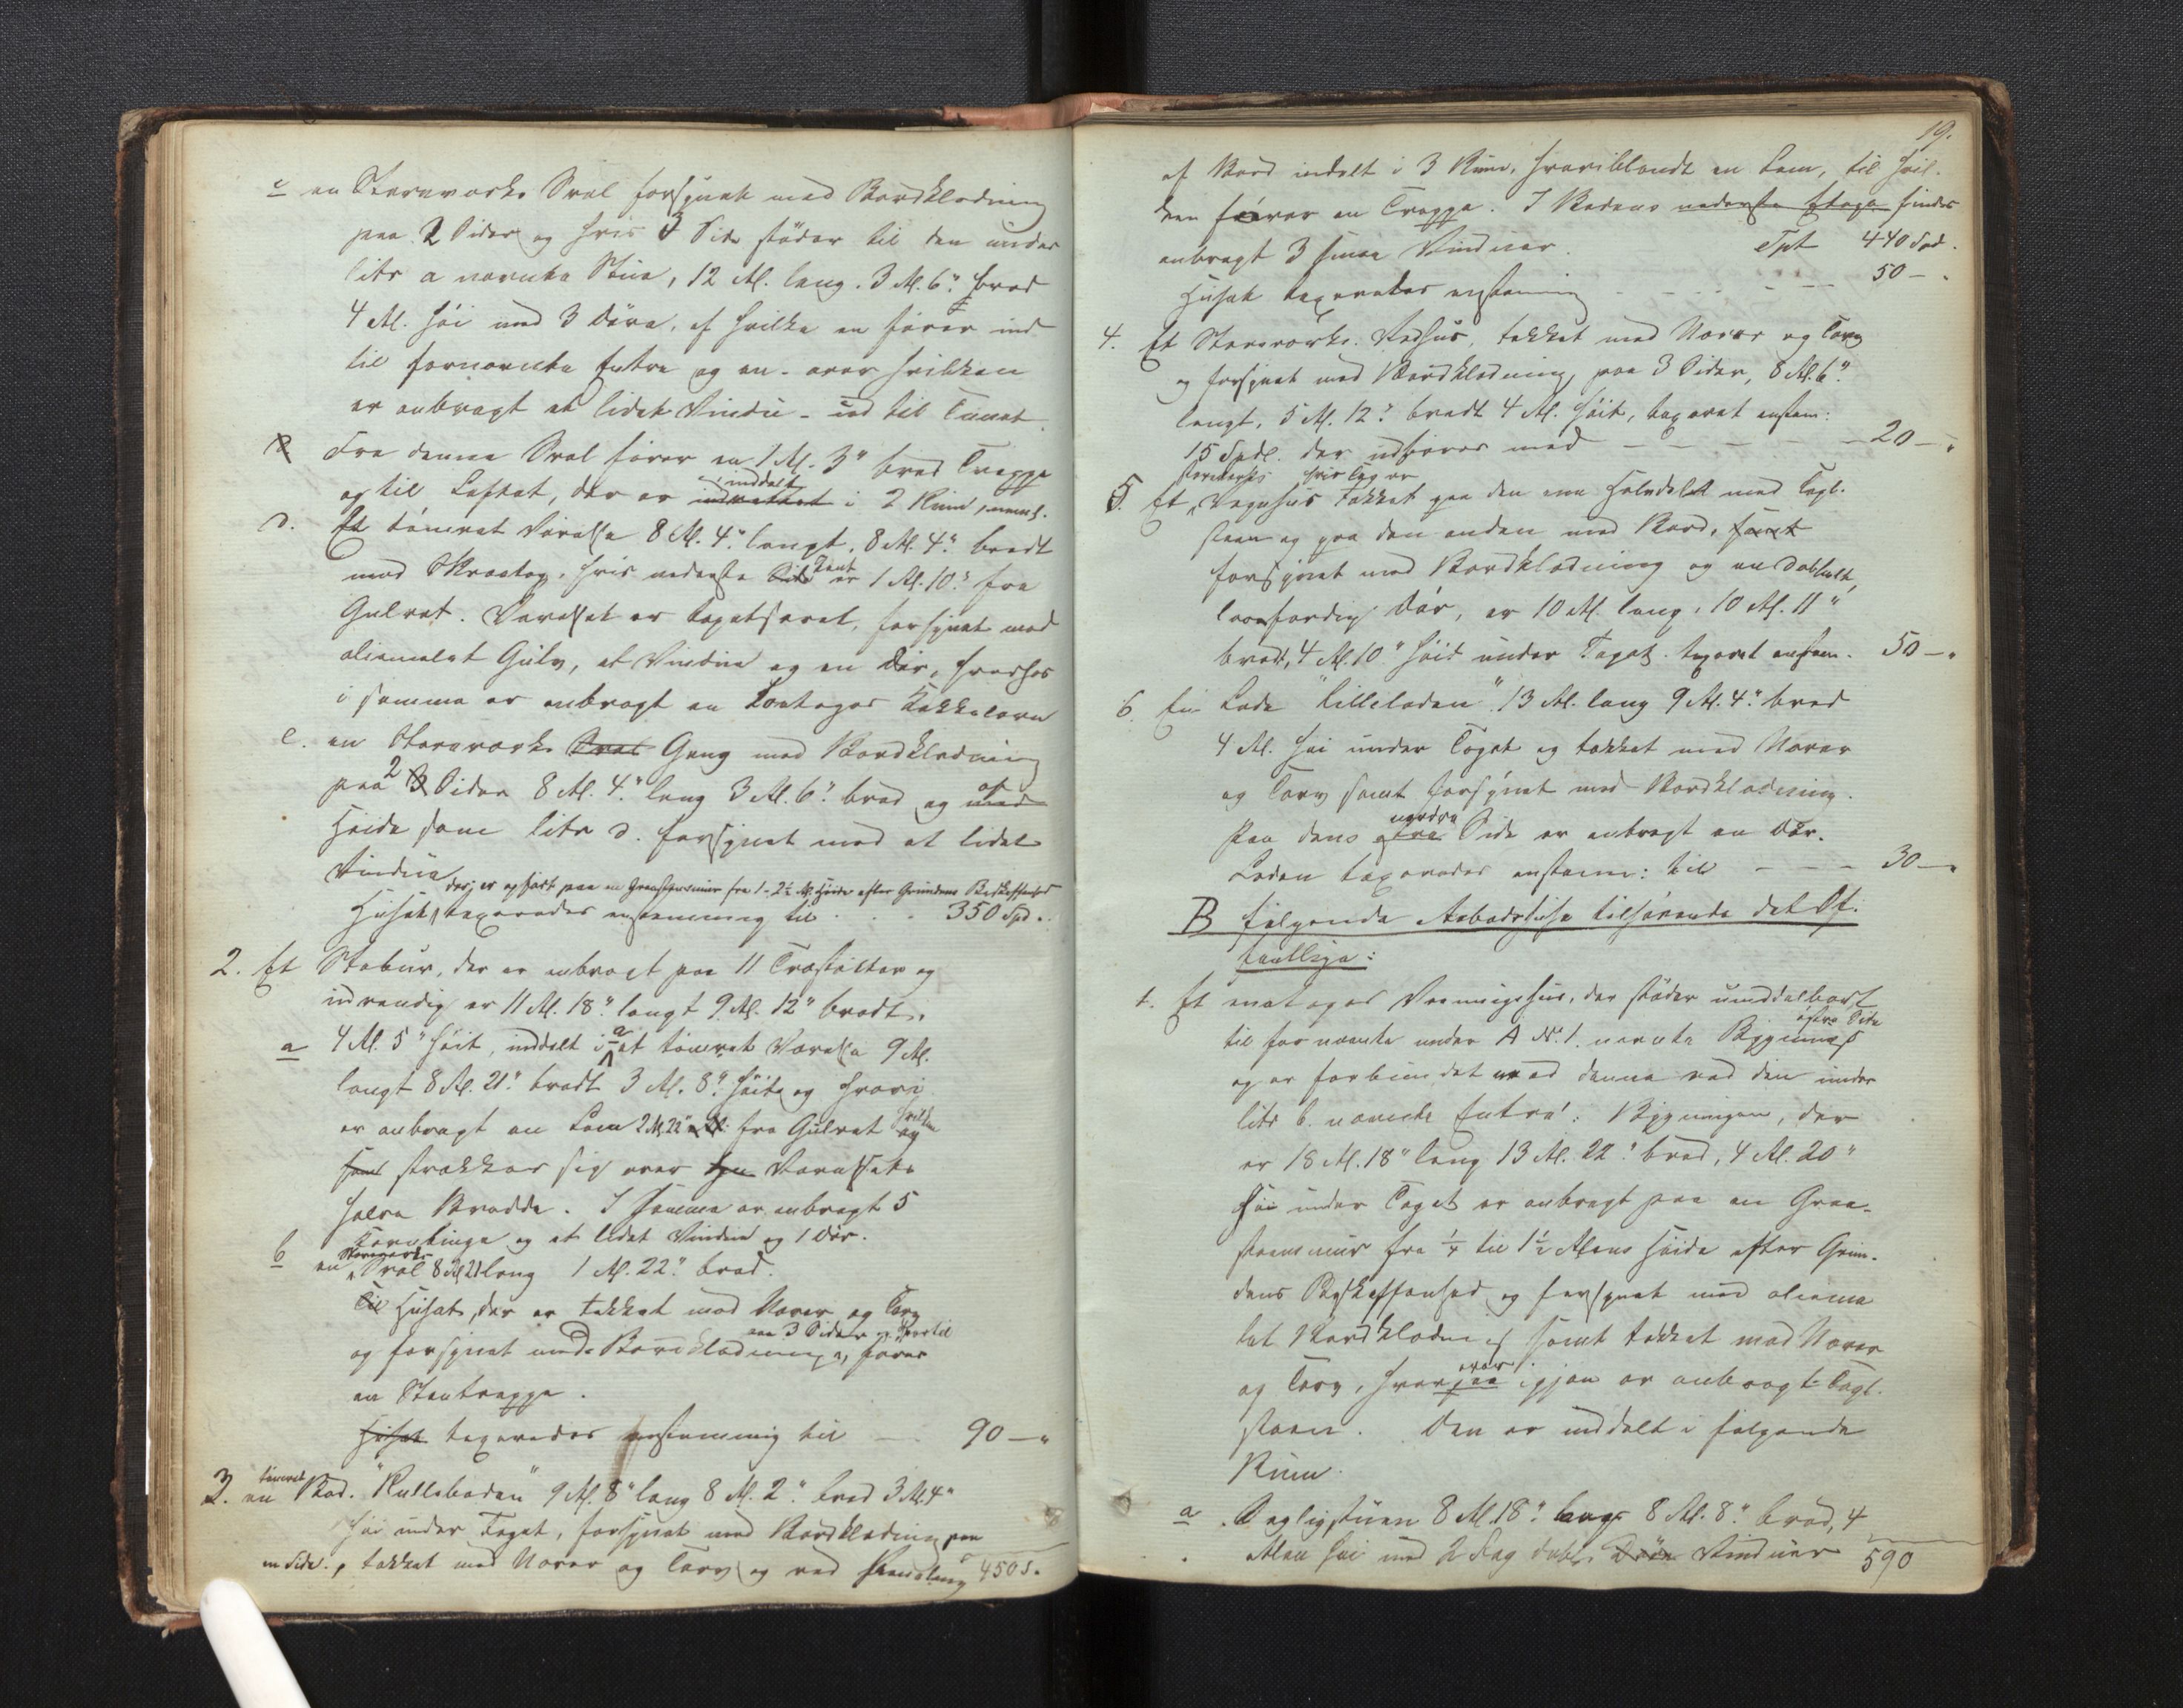 c en Staveværks Sval forsynet med Bordklædning
paa 2 Sider og hvis 3 Side støder til den under
litr a nævnte Stue, 12 Al. lang. 3 Al. 6" bred
4 Al. høi med 3 Døre, af hvilke en fører ind
til fornævnte Entre og en - over hvilken
er anbragt et lidet Vindu - ud til Tunet.
Fra denne Sval fører en 1 Al. 3" bred Trappe
op til Loftet, der er inddelt indrettet i 2 Rum, nemf.
d. Et tømret Værelse 8 Al. 4" langt, 8 Al. 4" bredt
med Skraatag, hvis nederste Side Kant er 1 Al. 10" fra
Gulvet. Værelset er tapetseret, forsynet med
oliemalet Gulv, et Vindue og en Dør, hvorhos
i samme er anbragt en toetages Kakkelovn
e. en Staveværks Sval Gang med Bordklædning
paa 2 3 Sider 8 Al. 4" lang 3 Al. 6" bred og af med
Høide som litr d. forsynet med et lidet
Vindue
der er opført paa en Graastensmuur fra 1-2½ Al. Høide efter Grundens Beskaffenhed
Huset, taxeredes enstemmig til . . . 350 Spd.
2. Et Stabur, der er anbragt paa 11 Træstolter og
indvendig er 11 Al. 18" langt 9 Al. 12" bredt,
a 4 Al. 5" høit, inddelt i a et tømret Værelse 9 Al.
langt 8 Al. 21" bredt 3 Al. 8" høit og hvori
er anbragt en Lem 2 Al. 22" fra Gulvet og hvilken
som strækker sig over Værelsets
halve Bredde. I samme er anbragt 5
Kornbinge og et lidet Vindue og 1 Dør.
b en Staveværks Sval 8 Al 21 lang 1 Al. 22" bred.
Til Huset, der er tækket med Næver og Torv
og forsynet med Bordklædning, paa 3 Sider og hvortil fører
en Stentrappe.
Huset taxeredes enstemmig til — 90 — "
3. en tømret Bod. "Rulleboden" 9 Al. 8" lang 8 Al. 2" bred 3 Al. 4"
høi under Taget, forsynet med Bordklædning paa
en Side, tækket med Næver og Torv og ved 450 S.
19.
af Bord indelt i 3 Rum, hvoriblandt en Lem, til hvil-
ken fører en Trappe. I Bodens nederste Etage findes
anbragt 3 smaa Vinduer. Tpt 440 Spd.
Huset taxeredes enstemmig - - - - - 50 - "
4. Et Staveværks Vedhus, tækket med Næver og Torv
og forsynet med Bordklædning paa 3 Sider, 8 Al. 6"
langt, 5 Al. 12" bredt 4 Al. høit, taxeret enstem:
15 Spdl. der udføres med - - - - - 20 - "
5. Et Staveværks Vognhus hvis Tag er tækket paa den ene Halvdel med Tagl-
steen og paa den anden med Bord, samt
forsynet med Bordklædning og en dobbelt,
laasfærdig Dør, er 10 Al. lang, 10 Al. 11"
bredt, 4 Al. 10" høit under Taget. taxeret enstem. 50 - "
6. En Lade "Lilleladen" 13 Al. lang 9 Al. 4" bred
4 Al. høi under Taget og tækket med Næver
og Torv samt forsynet med Bordklædning.
Paa dens nordre Side er anbragt en Dør.
Laden taxeredes enstem: til - - - 30 - "
B følgende Aabodshuse tilhørende det Of-
fentlige:
1. Et enetages Vaaningshus, der støder umiddelbart
til fornævnte under A No 1. nævnte Bygnings østre Side
og er forbundet med denne ved den under
litr b. nævnte Entré: Bygningen, der
er 18 Al. 18" lang 13 Al. 22" bred, 4 Al. 20"
høi under Taget er anbragt paa en Graa-
steensmuur fra ¼ til 1½ Alens Høide efter Grun-
dens Beskaffenhed og forsynet med oliema
let Bordklædning samt tækket med Næver
og Torv, hvorpaa over igjen er anbragt Tagl-
steen. Den er inddelt i følgende
Rum.
a. Dagligstuen 8 Al. 18" lang 8 Al. 8" bred, 4
Alen høi med 2 Fag dobl. Døre Vinduer 590